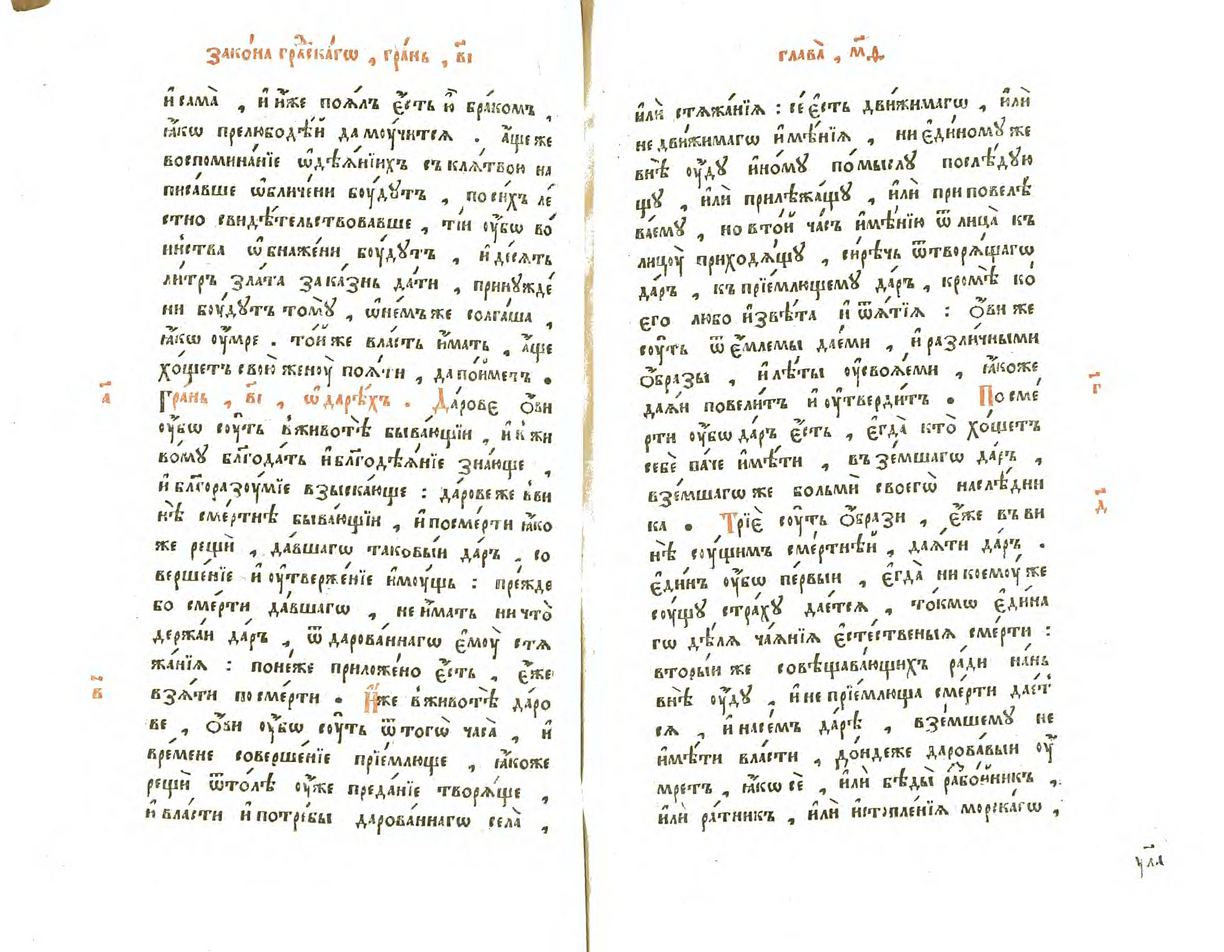 Зако́на гра́дскагѡ , гра́нь , в҃і
и҆ сама̀ , и҆ и҆́же поя́лъ є҆́сть ю҆̀ бра́комъ ,
ꙗ҆́кѡ прелюбодѣ́и да мо́учится . а҆́ще же
воспомина́нїе ѡ҆ дѣѧ́нїихъ съ клѧ́твои на
писа́вше ѡ҆бличе́ни бо́удꙋтъ , по си́хъ ле́
стно свидѣ́тельствовавше , ті́и оу҆́бѡ во́
иньства ѡ҆бнаже́ни бо́удꙋтъ , и҆ де́сѧть
ли́тръ зла́та за ка́знь да́ти , принꙋжде́
ни бо́удꙋтъ томꙋ̀ , ѡ҆ не́мъ же солга́ша ,
ꙗ҆́кѡ оу҆́мре . то́и же вла́сть и҆́мать , а҆́ще
хо́щетъ свою̀ женоу̀ поѧ́ти , да по́иметъ .
а҃
Гра́нь , в҃і , ѡ҆ даре́хъ . Да́рове ѻ҆́ви
оу҆́бѡ со́уть в животѣ̀ быва́ющїи , и҆ к жи
во́мꙋ бл҃года́ть и҆ бл҃годѣѧ́нїе зна́юще ,
и҆ бл҃горазо́умїе взыска́юще : да́рове же в ви
нѣ̀ сме́ртнѣ быва́ющїи , и҆ по сме́рти ꙗ҆́ко
же рещѝ , да́вшагѡ таковы́и да́ръ , со
верше́нїе и҆ оу҆твержє́нїе и҆мо́ущь : пре́жде
бо сме́рти да́вшагѡ , не и҆́мать ничто̀
держа́и да́ръ , ѿ дарова́ннагѡ є҆моу̀ стѧ
жа́нїѧ : поне́же приложе́но є҆́сть , є҆́же
в҃
взѧ́ти по сме́рти . И҆́же в животѣ̀ да́ро
ве , ѻ҆́ви оу҆́бѡ со́уть ѿ тогѡ̀ часа̀ , и҆
вре́мене соверше́нїе прїе́млюще , ꙗ҆́коже
рещѝ ѿто́лѣ оу҆́же преда́нїе творѧ́ще ,
и҆ вла́сти и҆ потре́бы дарова́ннагѡ села̀ ,
глава̀ , м҃д
и҆лѝ стѧжа́нїѧ : се́ є҆сть дви́жимагѡ , и҆лѝ
недви́жимагѡ и҆мѣ́нїѧ , ни є҆ди́номꙋ же
внѣ̀ оу҆́дꙋ и҆но́мꙋ по́мыслꙋ послѣ́дꙋю
щꙋ , и҆лѝ прилѣжа́щꙋ , и҆лѝ приповелѣ
ва́емꙋ , но в то́и ча́съ и҆мѣ́нїю ѿ лица̀ къ
лицоу̀ приходѧ́щꙋ , си́рѣчь ѿ творѧ́щагѡ
да́ръ , къ прїе́млющемꙋ да́ръ , кро́мѣ ко́
его любо и҆звѣ́та и҆ ѿѧ́тїѧ : ѻ҆́ви же
со́уть ѿ є҆́млемы дае́ми , и҆ разли́чными
ѻ҆́бразы , и҆ лѣ́ты оу҆своѧ́еми , ꙗ҆́коже
г҃
даѧ́и повели́тъ и҆ оу҆тверди́тъ . По сме́
рти оу҆́бѡ да́ръ є҆́сть , є҆гда̀ кто̀ хо́щетъ
себѐ па́че и҆мѣ́ти , въ зе́мшагѡ да́ръ ,
взе́мшагѡ же больмѝ своегѡ̀ наслѣ́дни
д҃
ка . Трїѐ со́уть ѻ҆́бразѝ , є҆́же въ ви
нѣ̀ со́ущимъ сме́ртнѣи , даѧ́ти да́ръ .
є҆ди́нъ оу҆́бѡ пе́рвыи , є҆гда̀ ни коемоу́ же
со́ущꙋ стра́хꙋ дае́тсѧ , то́кмѡ є҆ди́на
гѡ дѣ́лѧ ча́ѧнїѧ є҆сте́ственыѧ сме́рти :
вторы́и же совѣщава́ющихъ ра́ди на́нь
внѣ̀ оу҆́дꙋ , и҆ не прїе́млюща сме́рти дае́т
сѧ , и҆ на се́мъ да́рѣ , взе́мшемꙋ не
и҆мѣ́ти вла́сти , до́ндеже дарова́выи оу҆́
мретъ , ꙗ҆́кѡ сѐ , и҆лѝ бѣды̀ разбо́иникъ ,
и҆лѝ ра́тникъ , и҆лѝ и҆стопле́нїѧ морска́гѡ ,